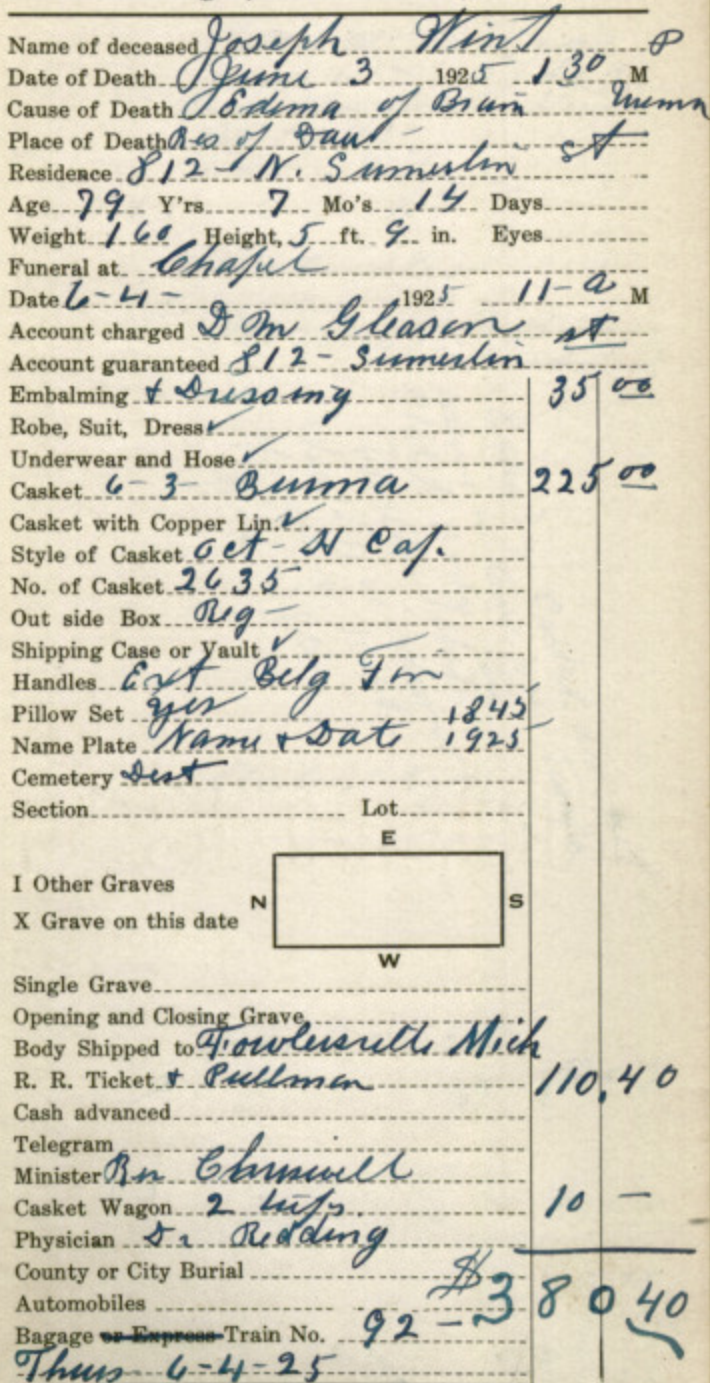 Name of deceased Joseph Wint P
Date of Death June 3 1925 1 30 M
Cause of Death Edema of Brain
Place of Death Res of Dau
Residence 812 - N. Sumerlin st
Age 79 Y'rs 7 Mo's 14 Days
Weight 160 Height, 5 ft. 9 in. Eyes
Funeral at Chapel
Date 6-4- 1925 11- a M
Account charged D M Gleason
Account guaranteed 812 - Sumerlin st
Embalming & Dressing 35 00
Robe, Suit, Dress ✓
Underwear and Hose ✓
Casket 6-3- Burma 225 00
Casket with Copper Lin. ✓
Style of Casket Oct - H Cap.
No. of Casket 2635
Out side Box Reg -
Shipping Case or Vault ✓
Handles Ext Belg
Pillow Set yes 1845
Name Plate Name & Date 1925
Cemetery Dist
Section Lot
E
I Other Graves
N S
X Grave on this date
W
Single Grave
Opening and Closing Grave
Body Shipped to Fowlerville Mich
R. R. Ticket & Pullman 110.40
Cash advanced
Telegram
Minister Rev
Casket Wagon 2 trips. 10 -
Physician Dr Redding
County or City Burial
Automobiles $380 40
Bagage or Express Train No. 92 -
Thurs 6-4-25